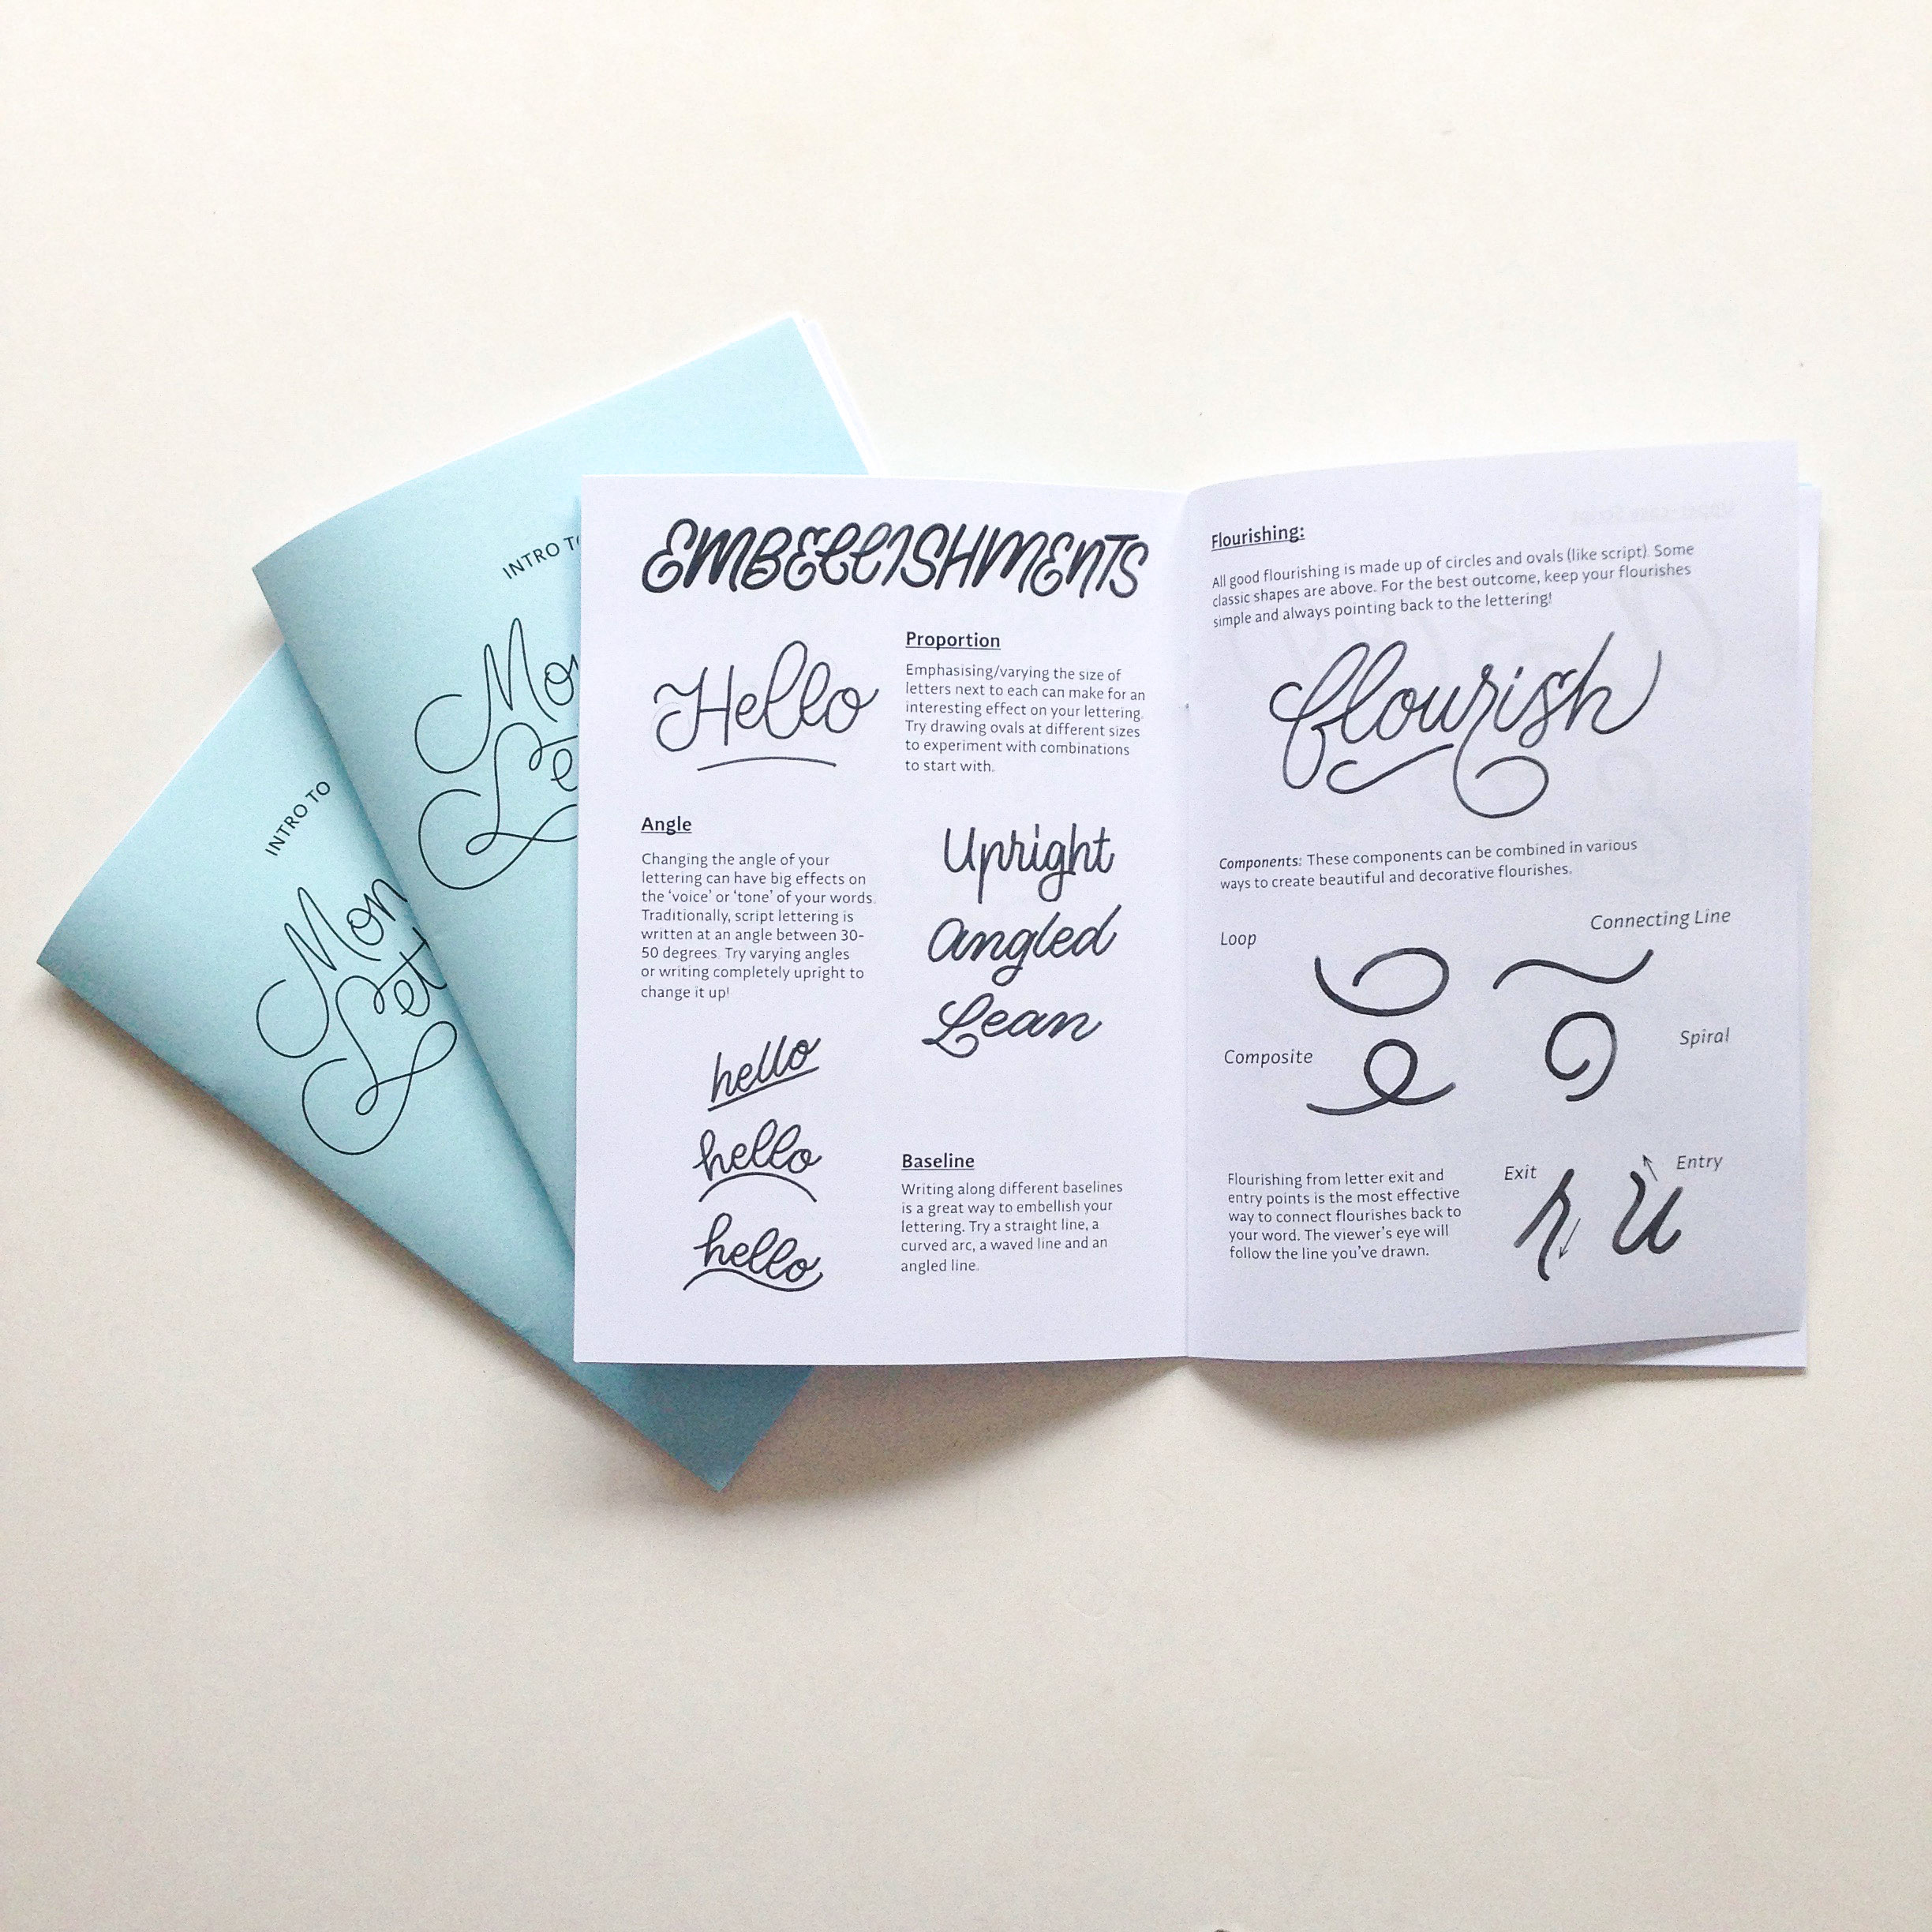 INTRO TO
INTRO TO
EMBELLISHMENTS
Hello
Proportion
Emphasising/varying the size of
letters next to each can make for an
interesting effect on your lettering.
Try drawing ovals at different sizes
to experiment with combinations
to start with.
Angle
Changing the angle of your
lettering can have big effects on
the ‘voice’ or ‘tone’ of your words.
Traditionally, script lettering is
written at an angle between 30-
50 degrees. Try varying angles
or writing completely upright to
change it up!
Upright
Angled
Lean
hello
hello
hello
Baseline
Writing along different baselines
is a great way to embellish your
lettering. Try a straight line, a
curved arc, a waved line and an
angled line.
Flourishing:
All good flourishing is made up of circles and ovals (like script). Some
classic shapes are above. For the best outcome, keep your flourishes
simple and always pointing back to the lettering!
flourish
Components: These components can be combined in various
ways to create beautiful and decorative flourishes.
Loop
Connecting Line
Composite
Spiral
Flourishing from letter exit and
entry points is the most effective
way to connect flourishes back to
your word. The viewer’s eye will
follow the line you’ve drawn.
Exit
Entry
r u